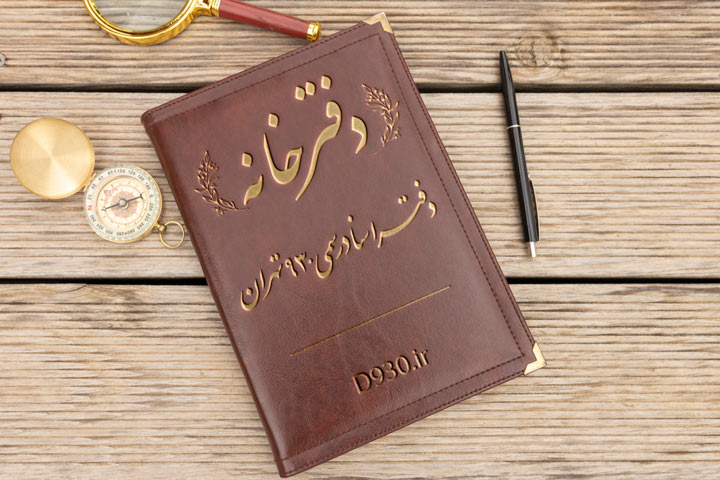 دفترخانه
دفتر اسناد رسمی ۹۳۰ تهران
D930.ir